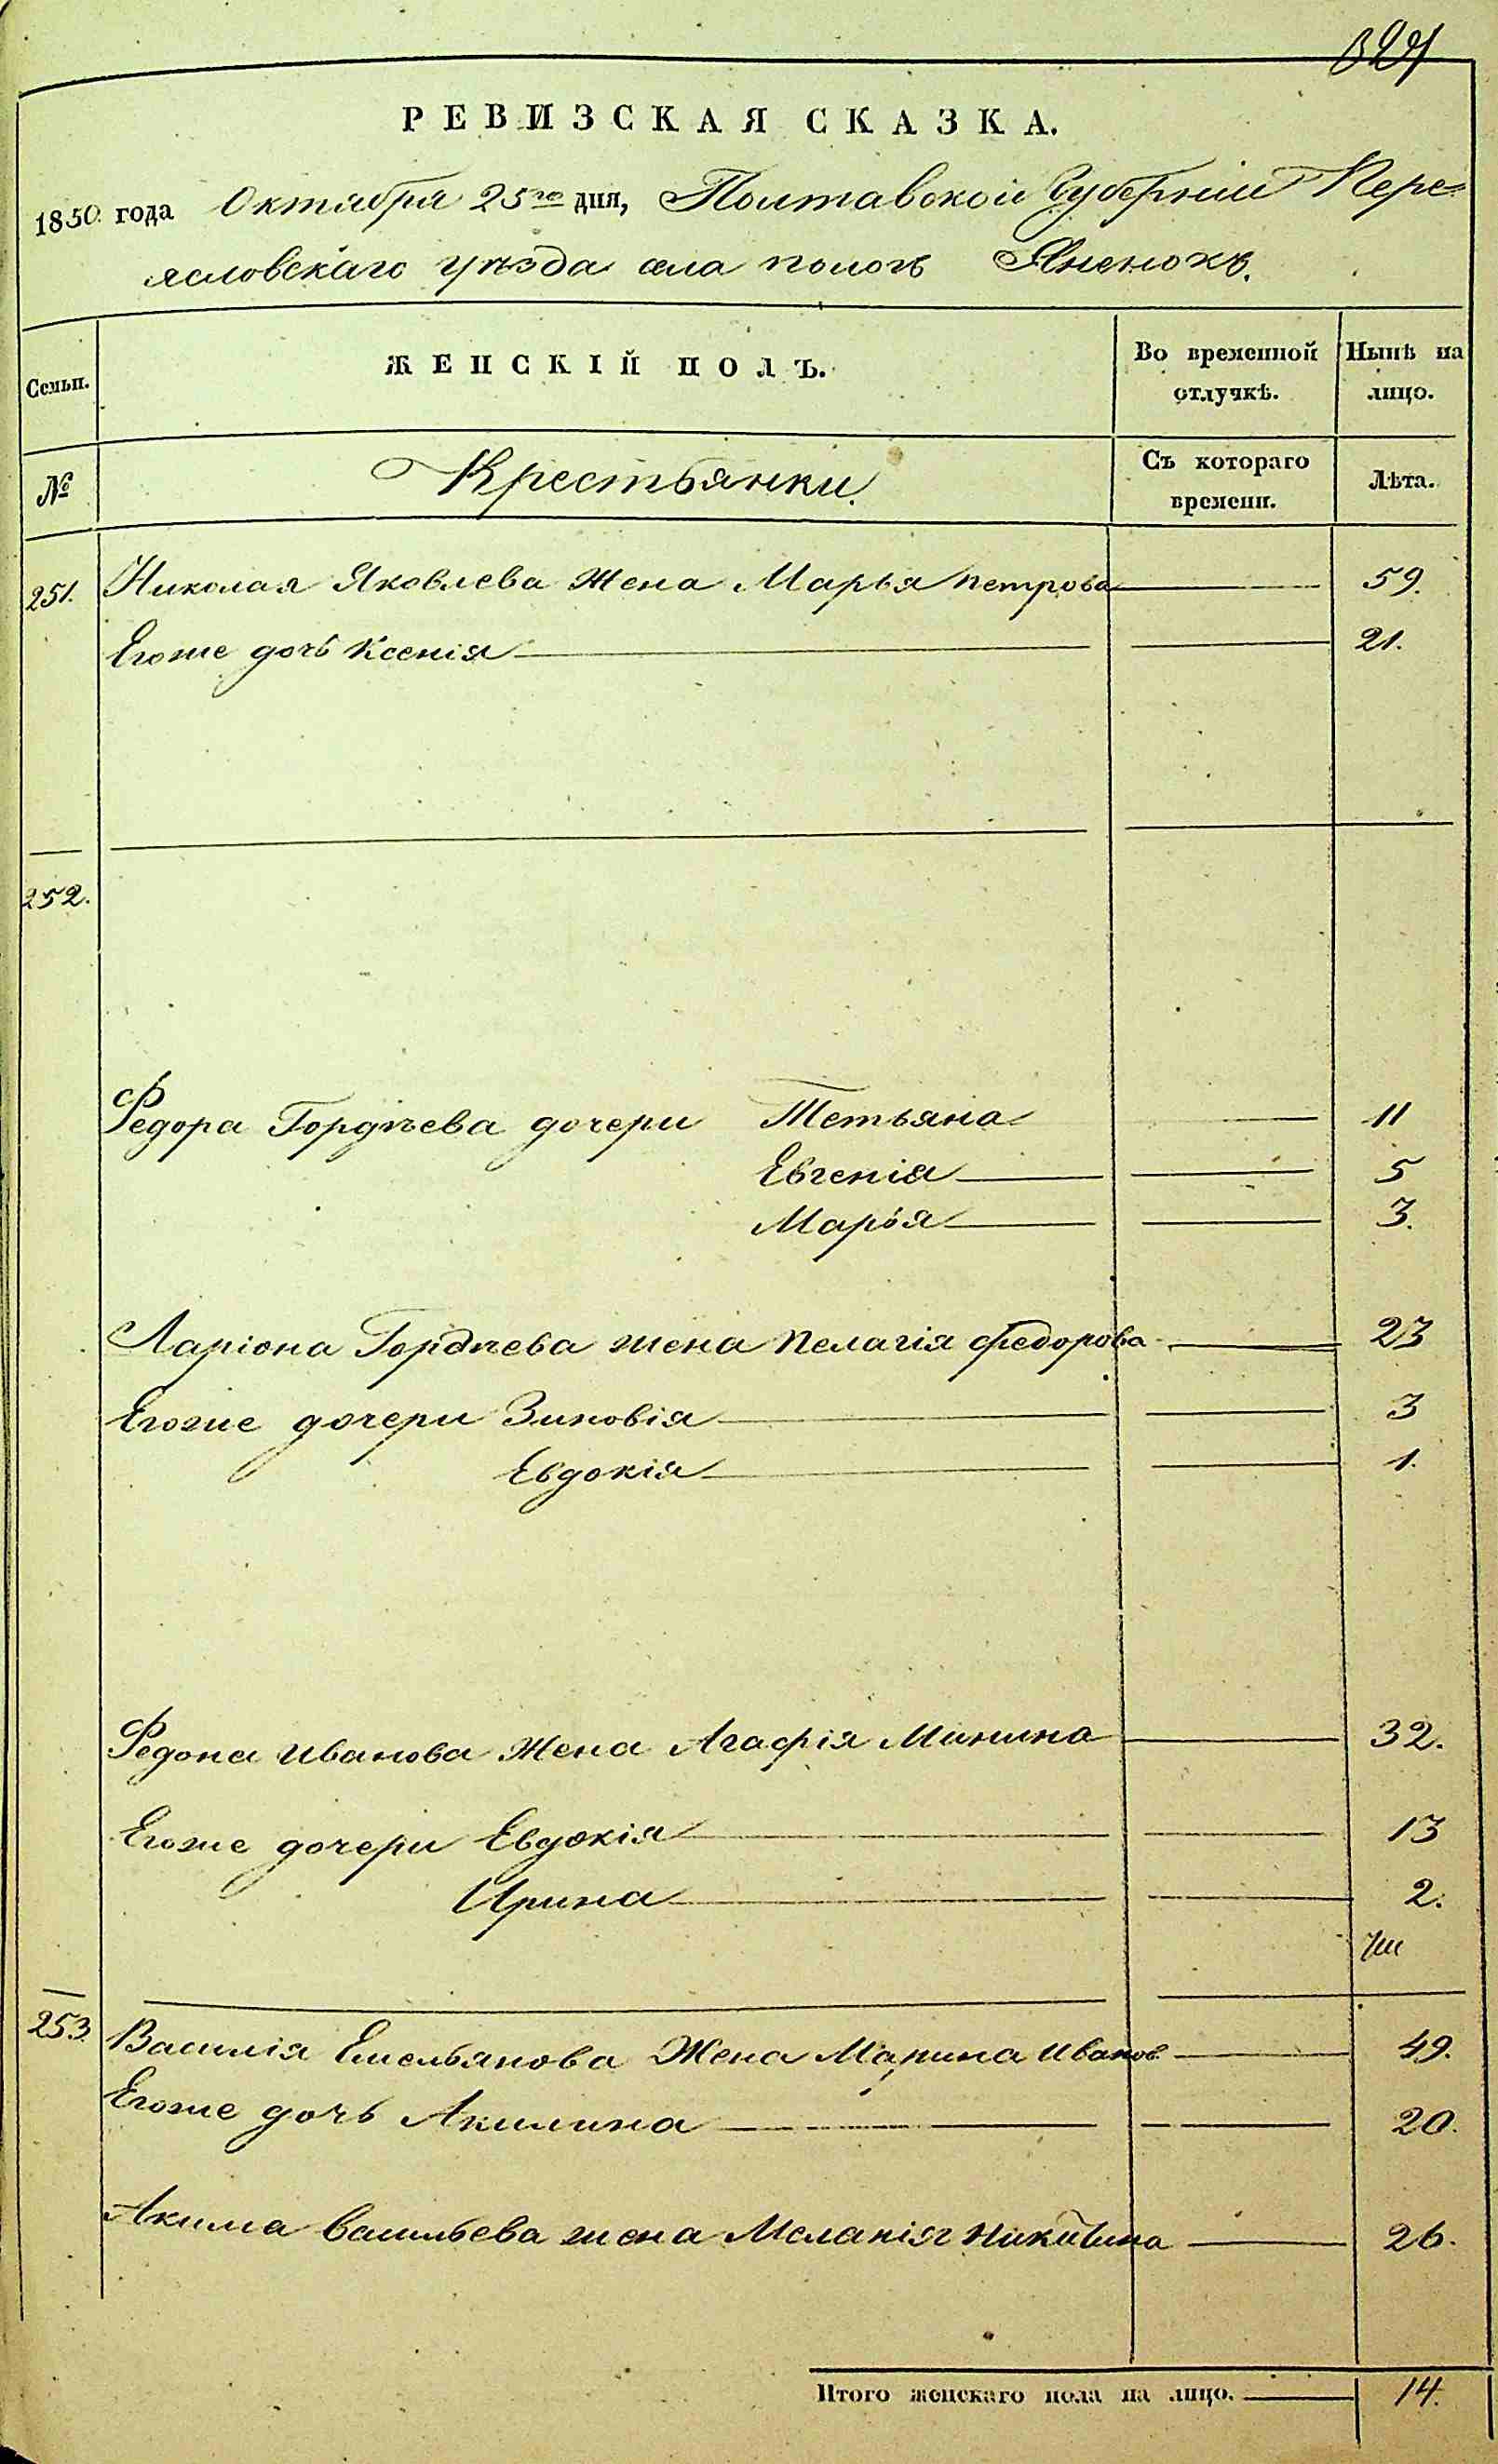 324
РЕВИЗСКАЯ СКАЗКА.
1850 года Октября 25го дня, Полтавской Губерніи Пере=
яловскаго уѣзда села пологъ Яненокъ.
Семьи. ЖЕНСКІЙ ПОЛЪ. Во временной отлучкѣ. Нынѣ на лицо.
№ Крестьянки. Съ котораго времени. Лѣта.
251. Николая Яковлева жена Марья Петрова 59.
Егоже дочь Ксенія 21.
252.
Федора Гордѣева дочери Тетьяна 11
Евгенія 5
Марья 3.
Ларіона Гордѣева жена Пелагія Федорова 23
Егоже дочери Зиновія 3
Евдокія 1.
Иванова Жена Агафія Минина 32.
Егоже дочери Евдокія 13
Ирина 2.
253. Василія Емельянова Жена Марина Иванов 49.
Егоже дочь Акилина 20.
Акима Васильева жена Меланія Никитина 26.
Итого женскаго пола на лицо. 14.